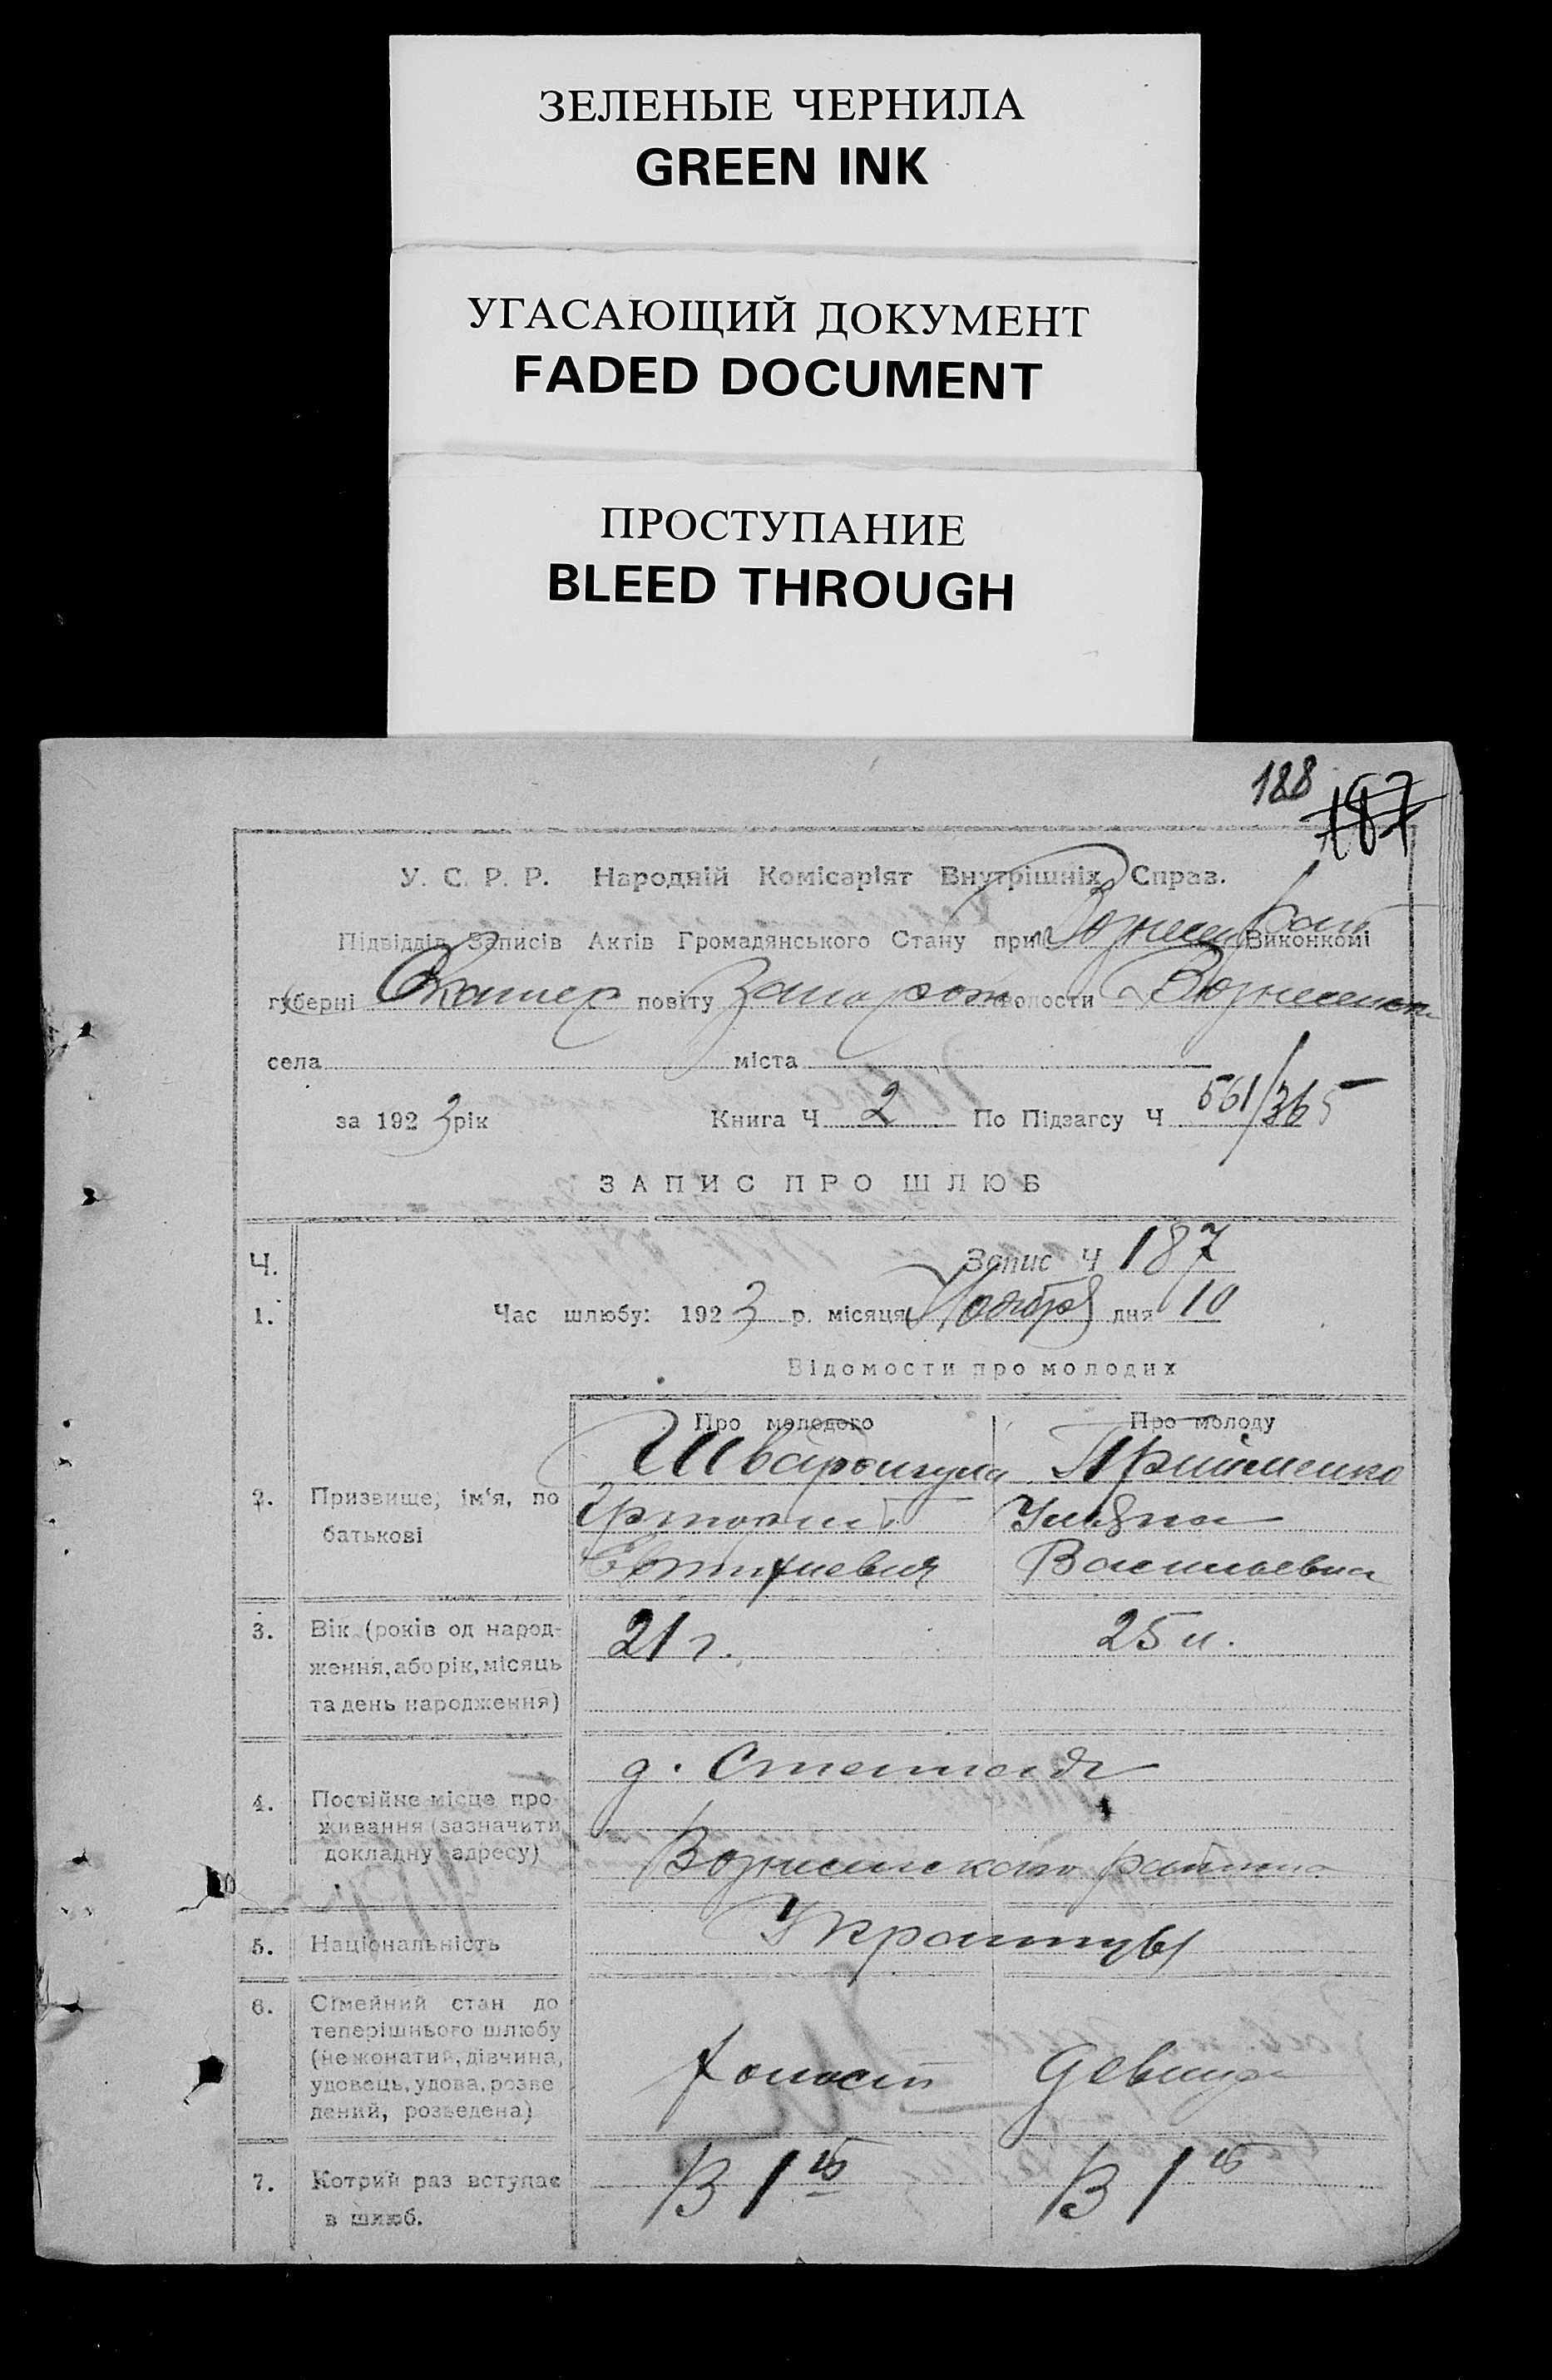 ЗЕЛЕНЫЕ ЧЕРНИЛА
GREEN INK
УГАСАЮЩИЙ ДОКУМЕНТ
FADED DOCUMENT
ПРОСТУПАНИЕ
BLEED THROUGH
188
187
У. С. Р. Р. Народній Комісаріят Внутрішніх Справ.
Підвідділ Записів Актів Громадянського Стану при Виконкомі
губерні Екатер повіту Запорож волости Вознесенск
села міста
за 1923 рік Книга Ч 2 По Підзагсу Ч 561/365
ЗАПИС ПРО ШЛЮБ
Ч. Запис Ч 187
1. Час шлюбу: 1923 р. місяця Ноября дня 10
Відомости про молодих
Про молодого Про молоду
2. Призвище, ім'я, по батькові
Евтихиевич Васильевна
3. Вік (років од народ-
ження, або рік, місяць
та день народження)
21 г. 25 л.
4. Постійне місце про-
живання (зазначити
докладну адресу)
Вознесенскаго района
5. Національність Украинцы
6. Сімейний стан до
теперішнього шлюбу
(нежонатий, дівчина,
удовець, удова, розве
дений, розведена)
холост девица
7. Котрий раз вступає
в шлюб.
В 1й В 1й